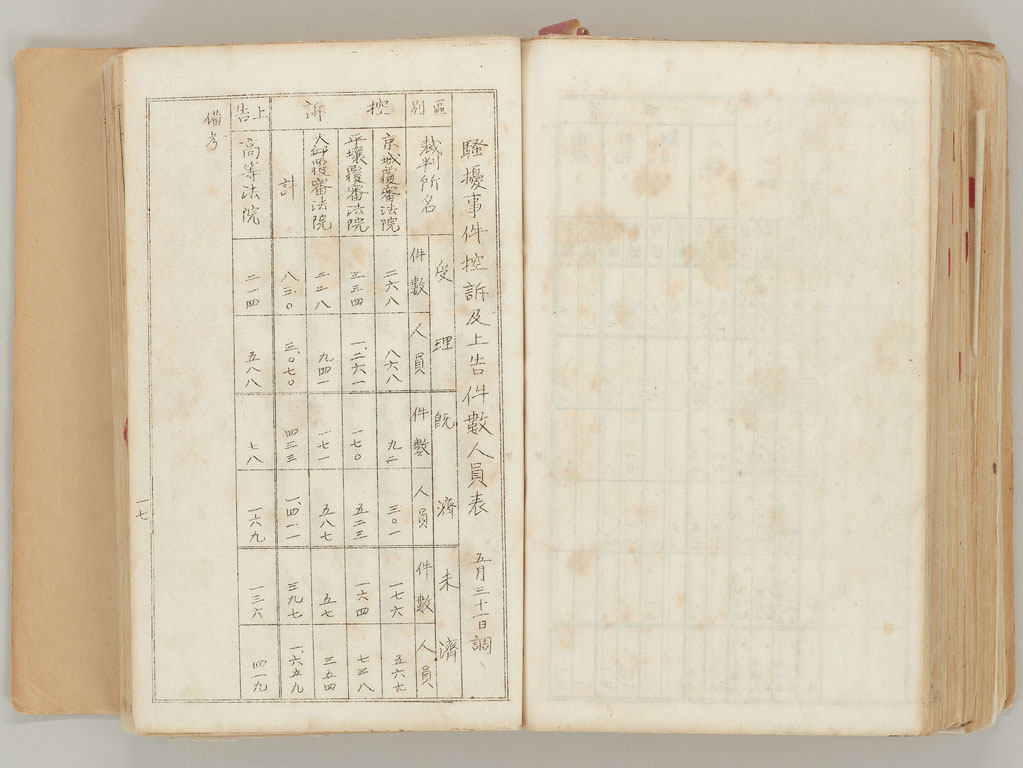 騷擾事件控訴及上告件數人員表 五月三十一日調、
區別 裁判所名 受理 既濟 未濟
件數 人員 件數 人員 件數 人員
控訴
京城覆審法院 二六八 八六八 九二 三〇一 一七六 五六七
平壤覆審法院 三三四 一、二六一 一七〇 五二三 一六四 七三八
大邱覆審法院 二二八 九四一 一七一 五八七 五七 三五四
計 八三〇 三、〇七〇 四三三 一、四一一 三九七 一、六五九
上告
高等法院 二一四 五八八 七八 一六九 一三六 四一九
備考
一七